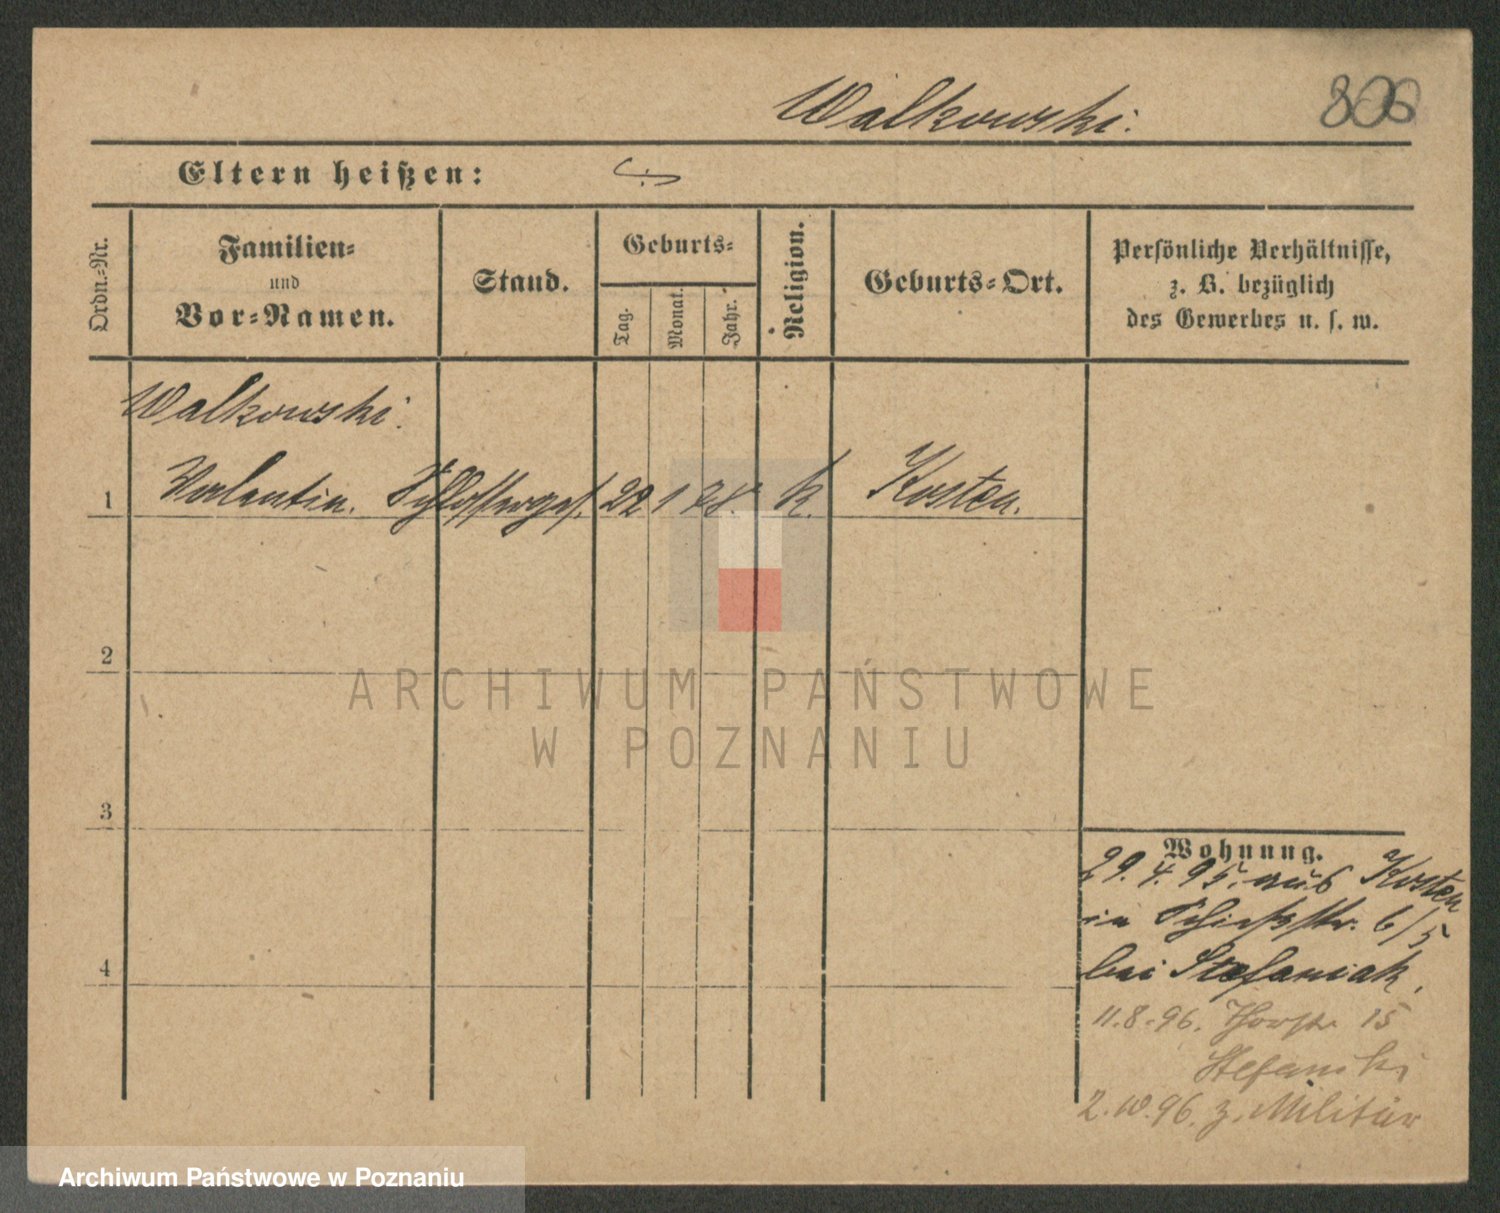 Walkowski.
806
Eltern heißen:
Ordn.-Nr.
Familien-
und
Vor-Namen.
Stand.
Geburts-
Tag.
Monat.
Jahr.
Religion.
Geburts-Ort.
Persönliche Verhältnisse,
z. B. bezüglich
des Gewerbes u. s. w.
Walkowski.
1 Valentin. Schlosserges. 22 1 78. k. Kosten.
2
3
4
ARCHIWUM PAŃSTWOWE
W POZNANIU
Wohnung.
29. 4. 95. aus Kosten
in Schießstr. 6/5
bei Stefaniak.
11.8.96. Thorstr. 15
Stefanski
2.10.96. z. Militär
Archiwum Państwowe w Poznaniu